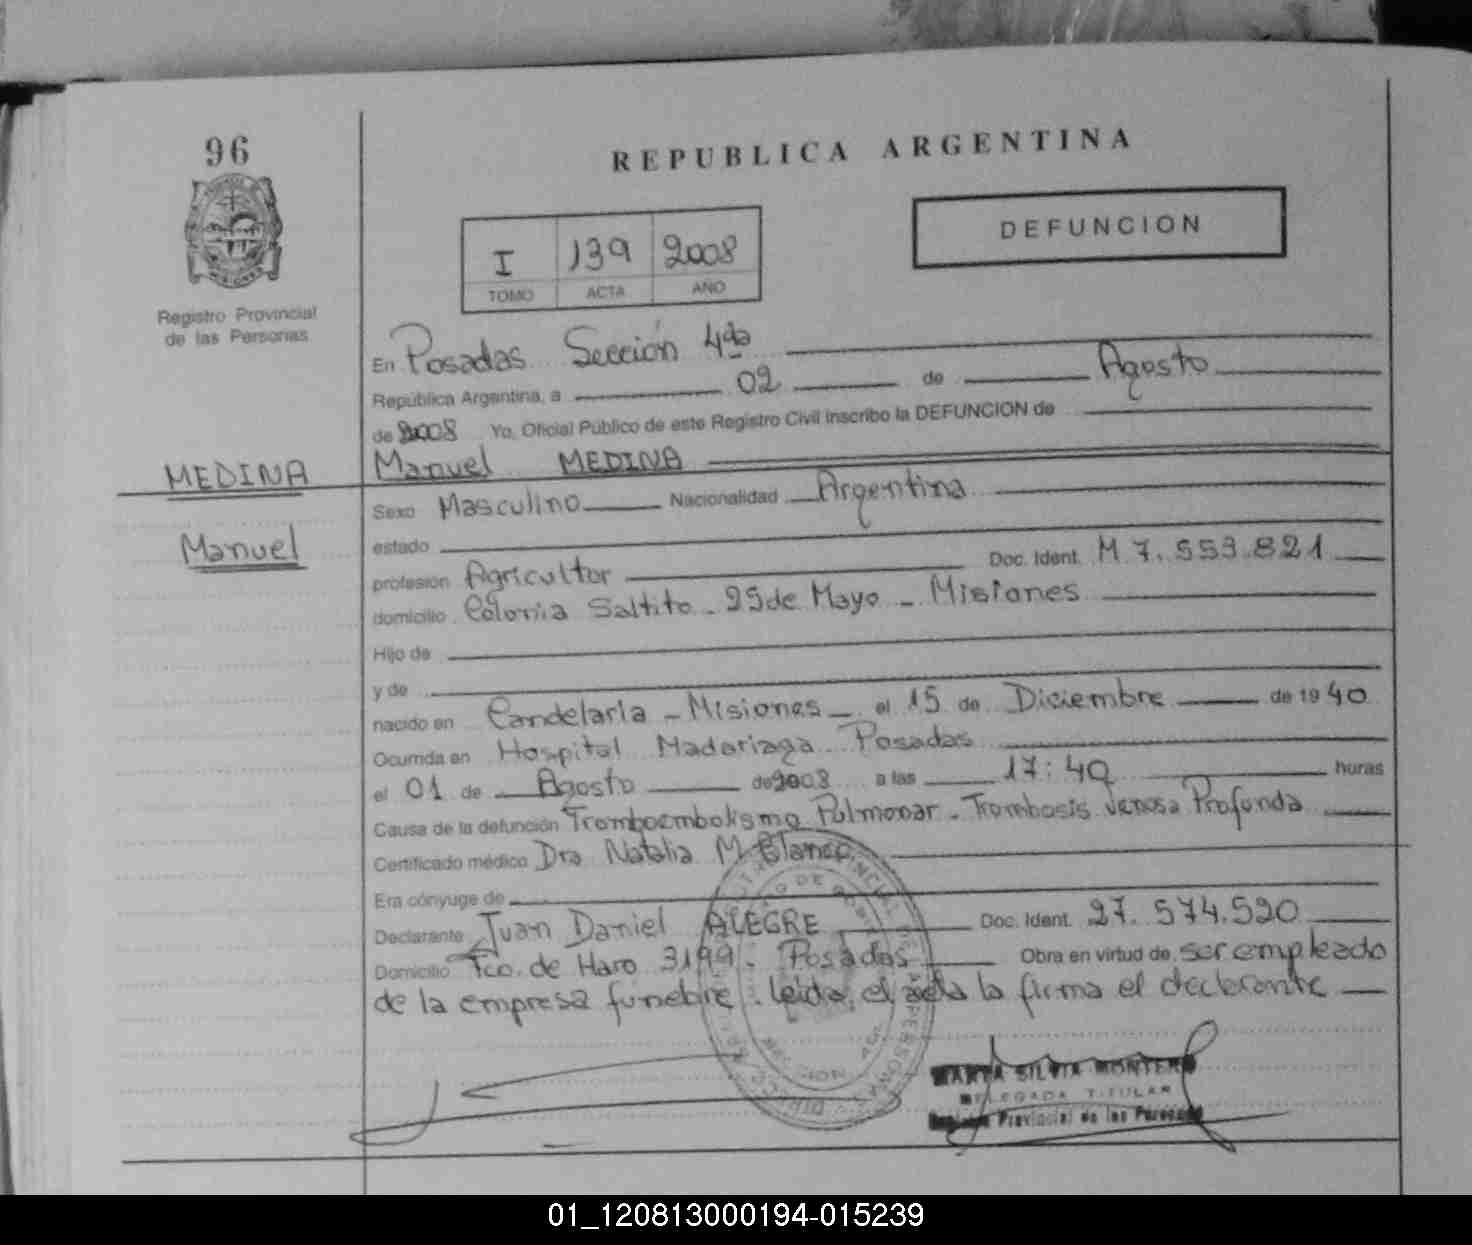 96
REPUBLICA ARGENTINA
DEFUNCION
I 139 2008
TOMO ACTA AÑO
Registro Provincial
de las Personas
En Posadas Sección 4da
República Argentina, a 02 de Agosto
de 2008 Yo, Oficial Público de este Registro Civil inscribo la DEFUNCION de
MEDINA
Manuel MEDINA
Sexo Masculino Nacionalidad Argentina
Manuel
estado
profesión Agricultor Doc. Ident. M 7.559.821
domicilio Colonia Saltito - 25 de Mayo - Misiones
Hijo de
y de
nacido en Candelaria - Misiones - el 15 de Diciembre de 1940
Ocurrida en Hospital Madariaga Posadas
el 01 de Agosto de 2008 a las 17:40 horas
Causa de la defunción Tromboembolismo Pulmonar - Trombosis Venosa Profunda
Certificado médico Dra Natalia M Blanco
Era cónyuge de
Declarante Juan Daniel ALEGRE Doc. Ident. 27.574.520
Domicilio Fco. de Haro 3199 - Posadas Obra en virtud de ser empleado
de la empresa fúnebre. Leida el acta la firma el declarante
MARTA SILVIA MONTERO
DELEGADA TITULAR
Registro Provincial de las Personas
01_120813000194-015239